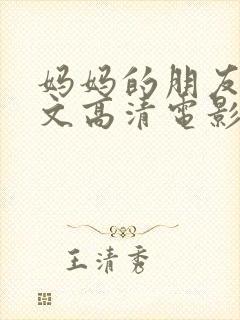 妈妈的朋友
文高清电影
王清秀